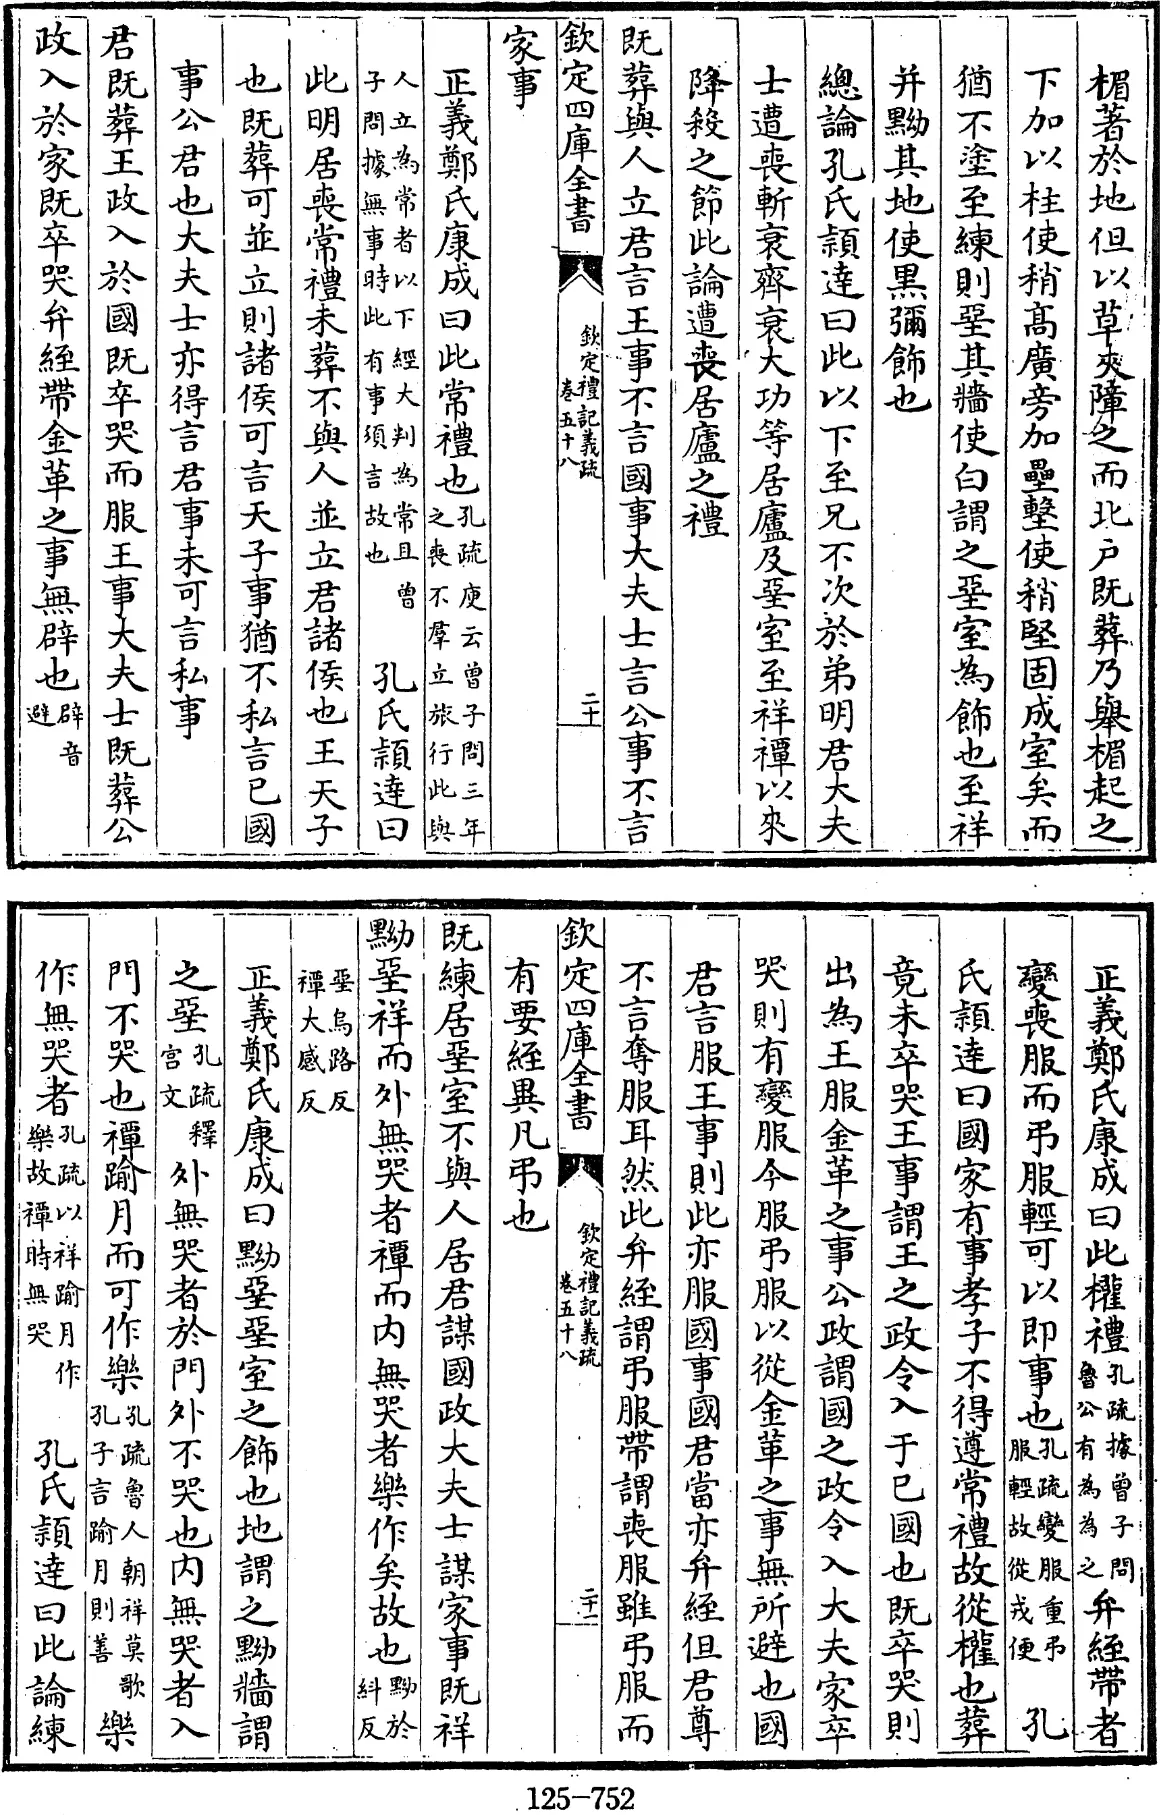 楣著於地但以草夾障之而北户既葬乃舉楣起之
下加以柱使稍髙廣旁加壘墼使稍堅固成室矣而
猶不塗至練則堊其牆使白謂之堊室為飾也至祥
并黝其地使黒彌飾也
總論孔氏穎達曰此以下至兄不次於弟明君大夫
士遭喪斬衰齊衰大功等居廬及堊室至祥禫以來
降殺之節此論遭喪居廬之禮
既葬與人立君言王事不言國事大夫士言公事不言
欽定四庫全書
欽定禮記義疏
卷五十八
二十
家事
正義鄭氏康成曰此常禮也孔疏庾云曾子問三年
之喪不羣立旅行此與
人立為常者以下經大判為常且曾
子問據無事時此有事須言故也
孔氏穎達曰
此明居喪常禮未葬不與人並立君諸侯也王天子
也既葬可並立則諸侯可言天子事猶不私言已國
事公君也大夫士亦得言君事未可言私事
君既葬王政入於國既卒哭而服王事大夫士既葬公
政入於家既卒哭弁絰帶金革之事無辟也辟音
避
正義鄭氏康成曰此權禮孔疏據曾子問
魯公有為為之
弁絰帶者
變喪服而弔服輕可以即事也孔疏變服重弔
服輕故從戎便
孔
氏穎達曰國家有事孝子不得遵常禮故從權也葬
竟未卒哭王事謂王之政令入于已國也既卒哭則
出為王服金革之事公政謂國之政令入大夫家卒
哭則有變服今服弔服以從金革之事無所避也國
君言服王事則此亦服國事國君當亦弁絰但君尊
不言奪服耳然此弁絰謂弔服帶謂喪服雖弔服而
欽定四庫全書
欽定禮記義疏
卷五十八
二十一
有要絰異凡弔也
既練居堊室不與人居君謀國政大夫士謀家事既祥
黝堊祥而外無哭者禫而内無哭者樂作矣故也黝於
糾反
堊烏路反
禫大感反
正義鄭氏康成曰黝堊堊室之飾也地謂之黝牆謂
之堊孔疏釋
宫文
外無哭者於門外不哭也内無哭者入
門不哭也禫踰月而可作樂孔疏魯人朝祥莫歌
孔子言踰月則善
樂
作無哭者孔疏以祥踰月作
樂故禫時無哭
孔氏穎達曰此論練
125-752